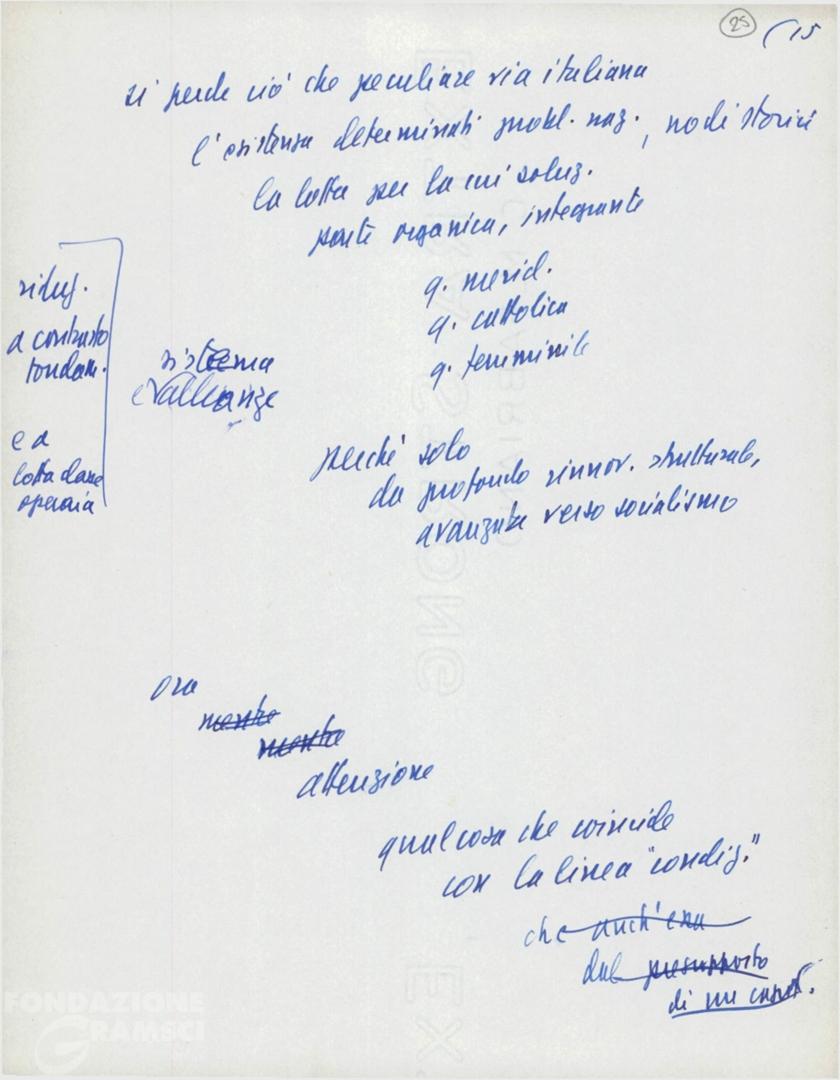 25 (15
si perde ciò che peculiare via italiana
l'esistenza determinati probl. naz., nodi storici
la lotta per la cui soluz.
parte organica, integrante
q. merid.
q. cattolica
q. femminile
riduz.
a contrasto
fondam.
e a
lotta classe
operaia
sistema
alleanze
perché solo
da profondo rinnov. strutturale,
avanzata verso socialismo
ora
mentre
mentre
attenzione
qualcosa che coincide
con la linea "condiz."
che anch'essa
dal presupposto
di un
EXTRA STRONG
FABRIANO
EX
FONDAZIONE
GRAMSCI